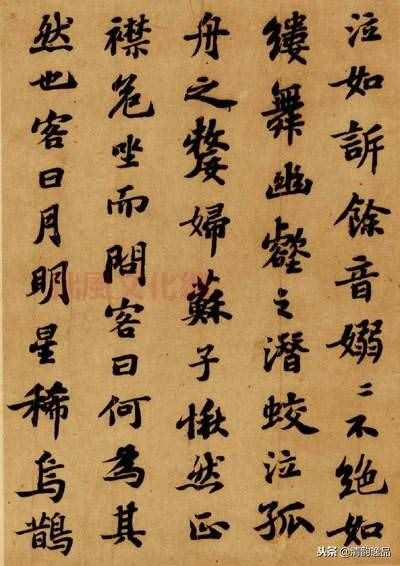 泣如訴餘音嫋〻不絕如
縷舞幽壑之潛蛟泣孤
舟之嫠婦蘇子愀然正
襟危坐而問客曰何為其
然也客曰月明星稀烏鵲
头条 @清韵逸品